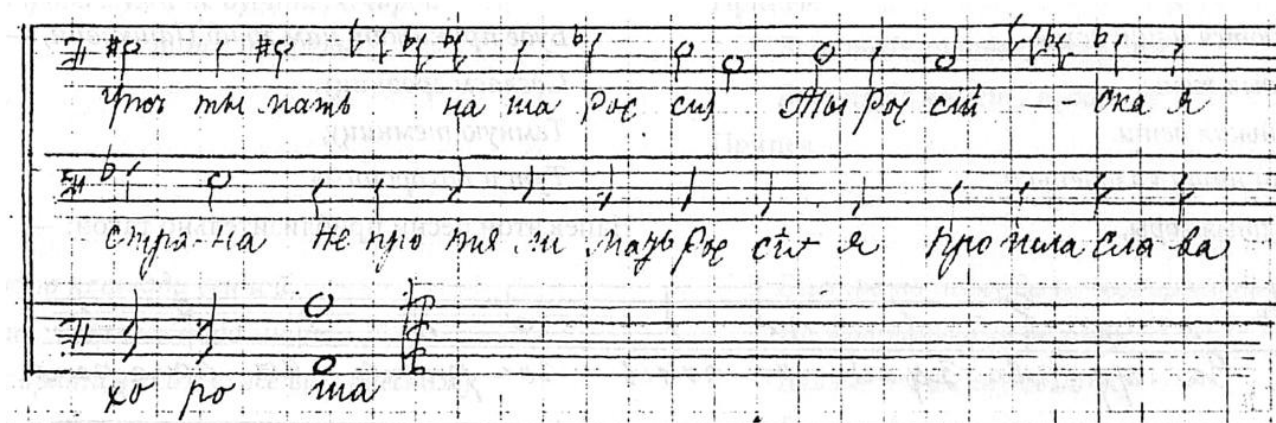 Ужъ ты мать на ша Рос сия Ты Рос сій - - ска я
стра-на Не про тя ли мать Рос сія я про шла сла ва
хо ро ша